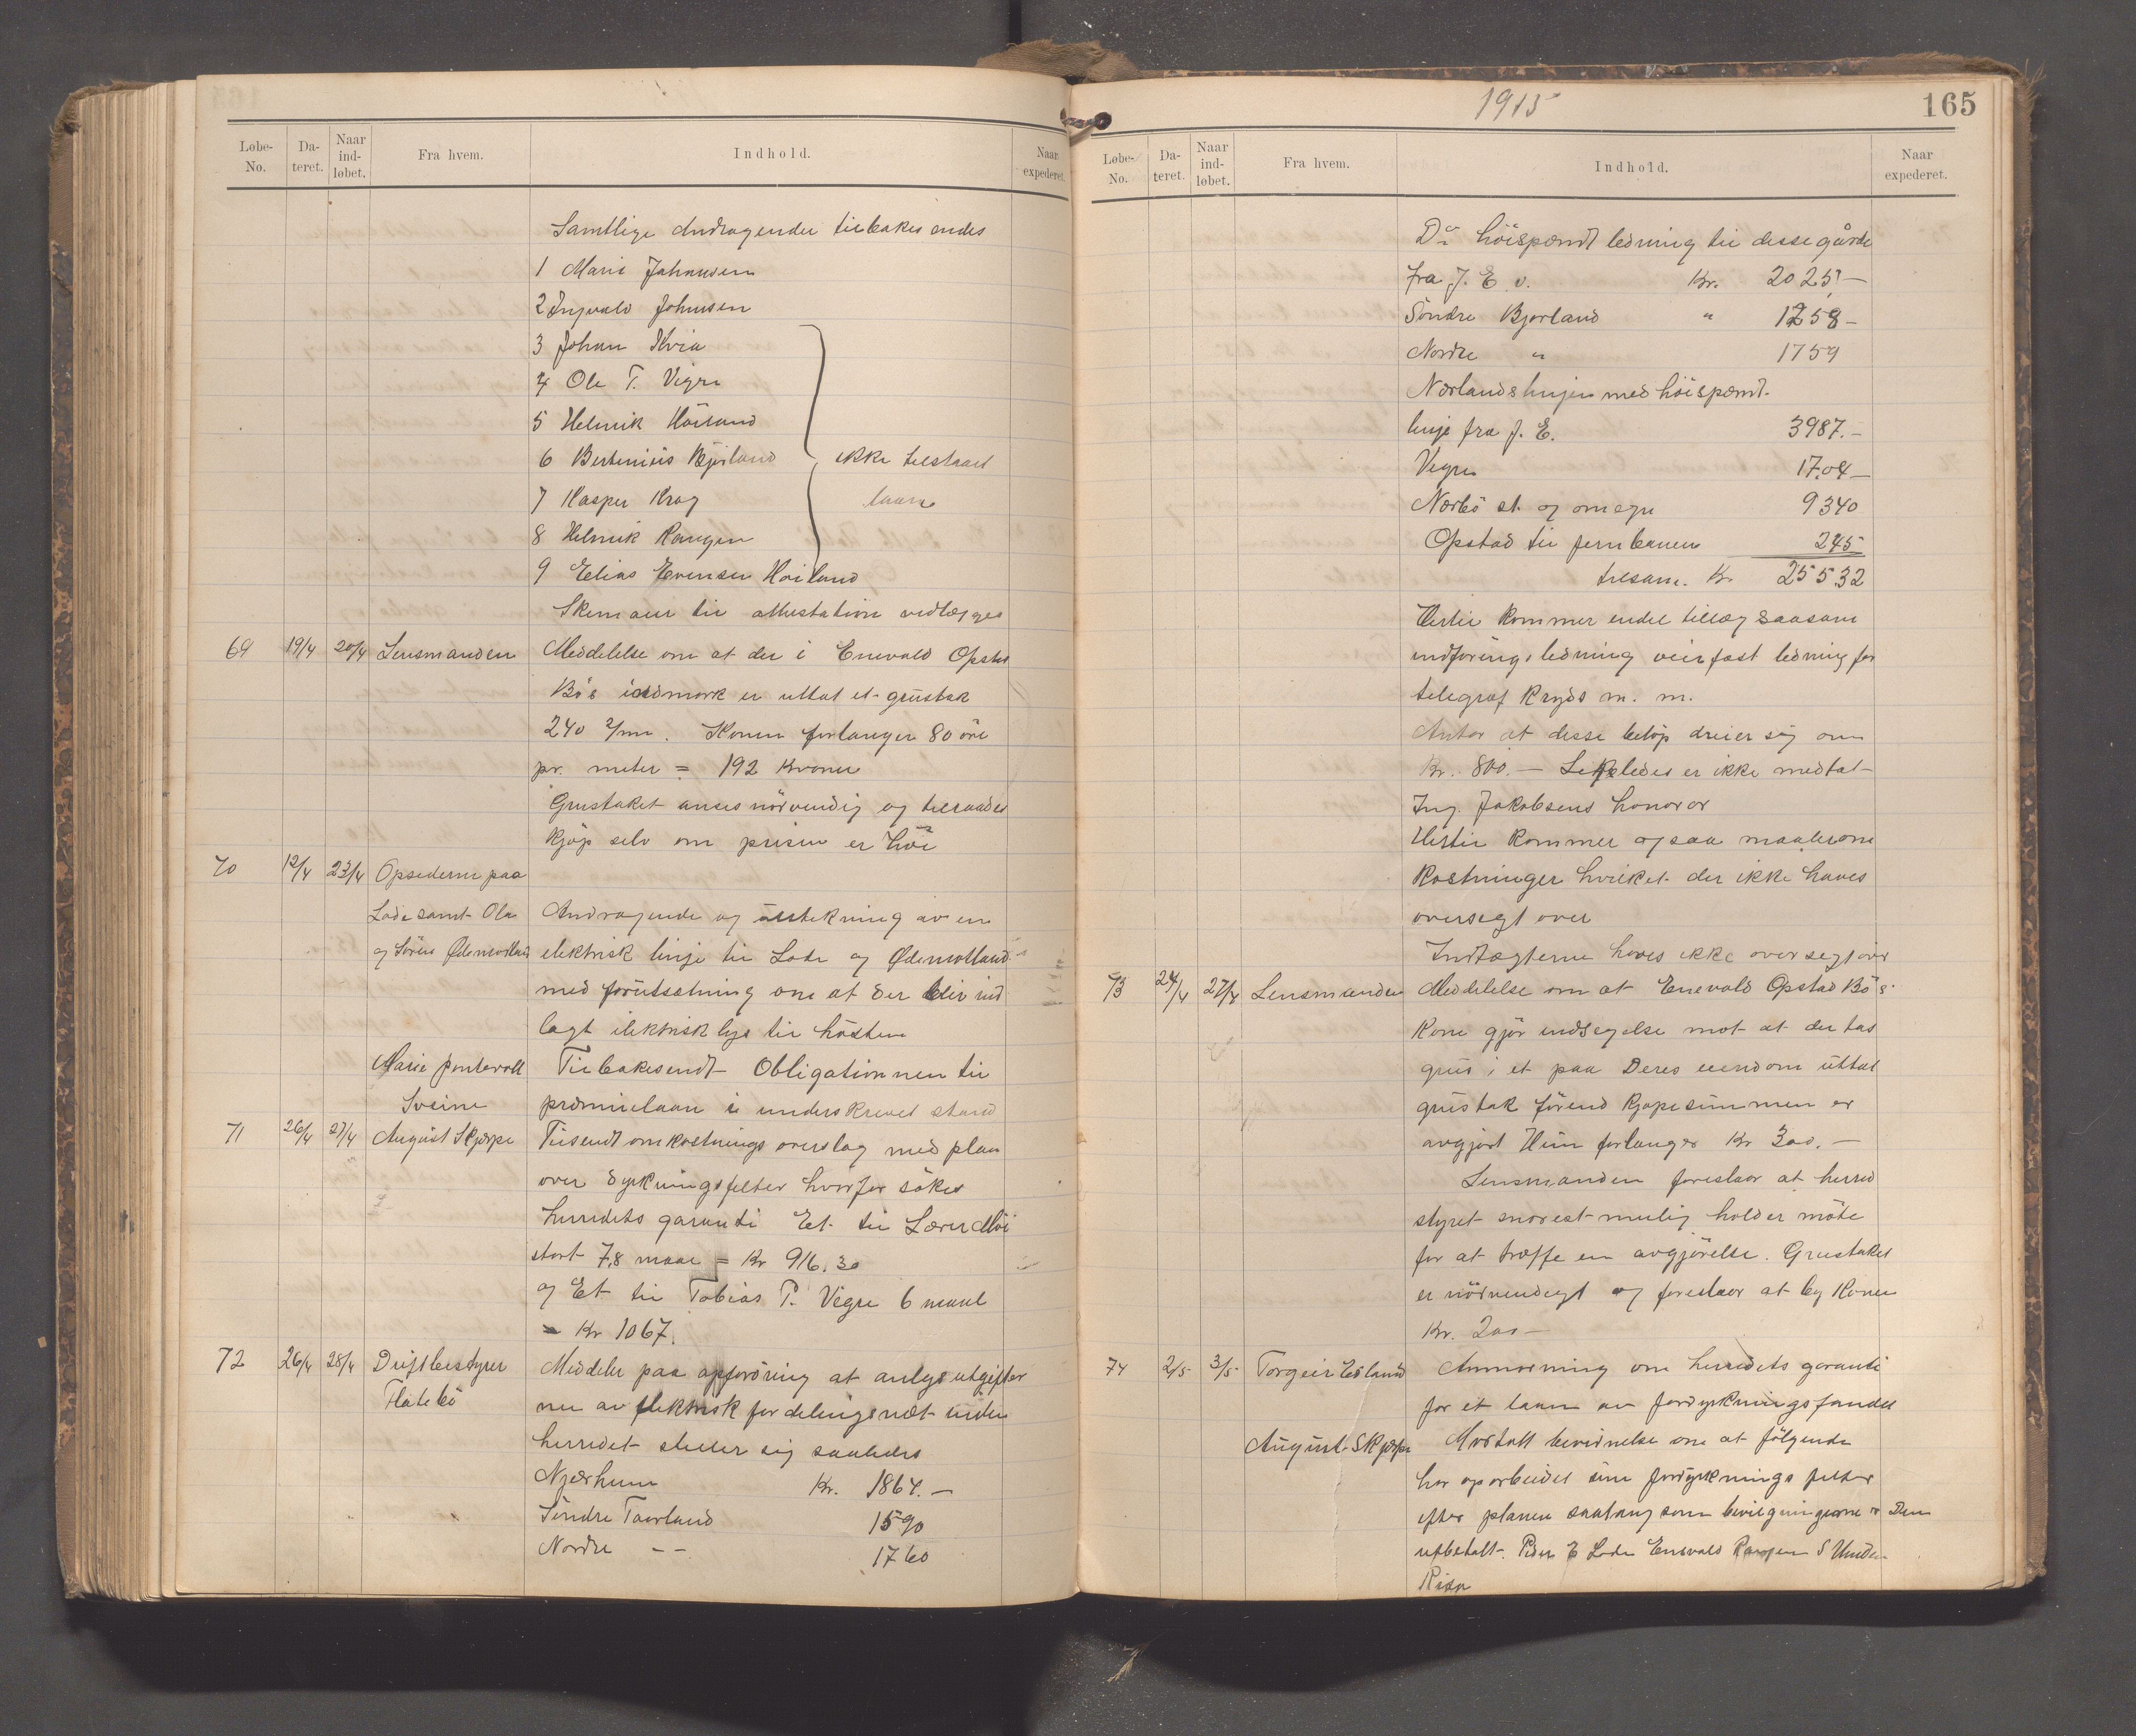 Løbe-No. Da-teret. Naar ind-løbet. Fra hvem. Indhold. Naar expederet.
Samtlige Andragender tilbakesendes
1 Marie Johnnsen
2 Ingvald Johnsen
3 Johan Kvia
4 Ole T. Vigre
5 Helmik Höiland
6 Bertinius Bjorland ikke tilstaaet
7 Kasper Krag laan
8 Helmik Rangen
9 Elias Evensen Höiland
Skemaer til attestation vedlægges
69 19/4 20/4 Lensmanden Meddelelse om at der i Enevald Opstad
Bö's indmark er uttat et grustak
240 2/m. Konen forlanger 80 öre
pr. meter = 192 Kroner
Grustaket anses nörvendig og tilraades
kjöp selv om prisen er höi
70 12/4 23/4 Opsederne paa
Lode samt Ola Andragende og uttekning av en
og Sören Ødemotland elektrisk linje til Lode og Ødemotland
med forutsætning om at der blir ind
lagt elektrisk lys til hösten
Marie Pontevoll Tilbakesendt Obligationnen til
Sveine præmielaan i underskrevet stand
71 26/4 27/4 August Skjærpe Tilsendt omkostnings overslag med plan
over dyrkningsfelter hvorfor sökes
herredets garanti Et til Lærer Möi
stort 7,8 maal = Kr 916.30
og Et til Tobias P. Vigre 6 maal
= Kr 1067.
72 26/4 28/4 Driftbestyrer Meddeler paa opfordring at anlegsutgifter
Flatebö nu av elektrisk fordelingsnæt inden
herredet stiller sig saaledes
Njærheim Kr. 1864.—
Söndre Taarland 1590
Nordre — — 1760
1915
165
Løbe-No. Da-teret. Naar ind-løbet. Fra hvem. Indhold. Naar expederet.
Do höispændt ledning til desse gårde
fra J. E. v. Kr. 2025,—
Söndre Bjorland " 1258—
Nordre " 1759
Nærlandslinjen med höispændt.
linje fra J. E. 3987.—
Vigre 1704—
Nærbö st. og omegn 9340
Opstad til jernbanen 245
tilsam. Kr. 25532
Hertil kommer endel tillæg saasom
indförings ledning veirfast ledning for
telegraf kryds m. m.
Antar at desse belöp dreier sig om
Kr. 800.— Lekeledes er ikke medtat
Ing. Jakobsens honorar
Hertil kommer ogsaa maalerom
kostninger hvilket der ikke haves
oversegt over
Indtægterne haves ikke oversegt over
73 24/4 27/4 Lensmanden Meddelelse om at Enevald Opstad Bö's
kone gjör indsegelse mot at der tas
grus i et paa Deres eiendom uttat
grustak förend kjöpesummen er
avgjort Hun forlanger Kr 300.—
Lensmanden foreslaar at herred
styret snarest mulig holder möte
for at træffe en avgjörelse. Grustaket
er nörvendigt og foreslaar at by Konen
Kr. 200—
74 2/5 3/5 Torgeir Eiland Anmodning om herredets garanti
for et laan av fordyrkningsfondet
August Skjærpe Motatt bevidnelse om at fölgende
har oparbeidet sine fordyrknings felter
efter planen saalang som bevilgningerne er Dem
utbetalt. Peder E Lode Enevald Rangen S Under-
Risa